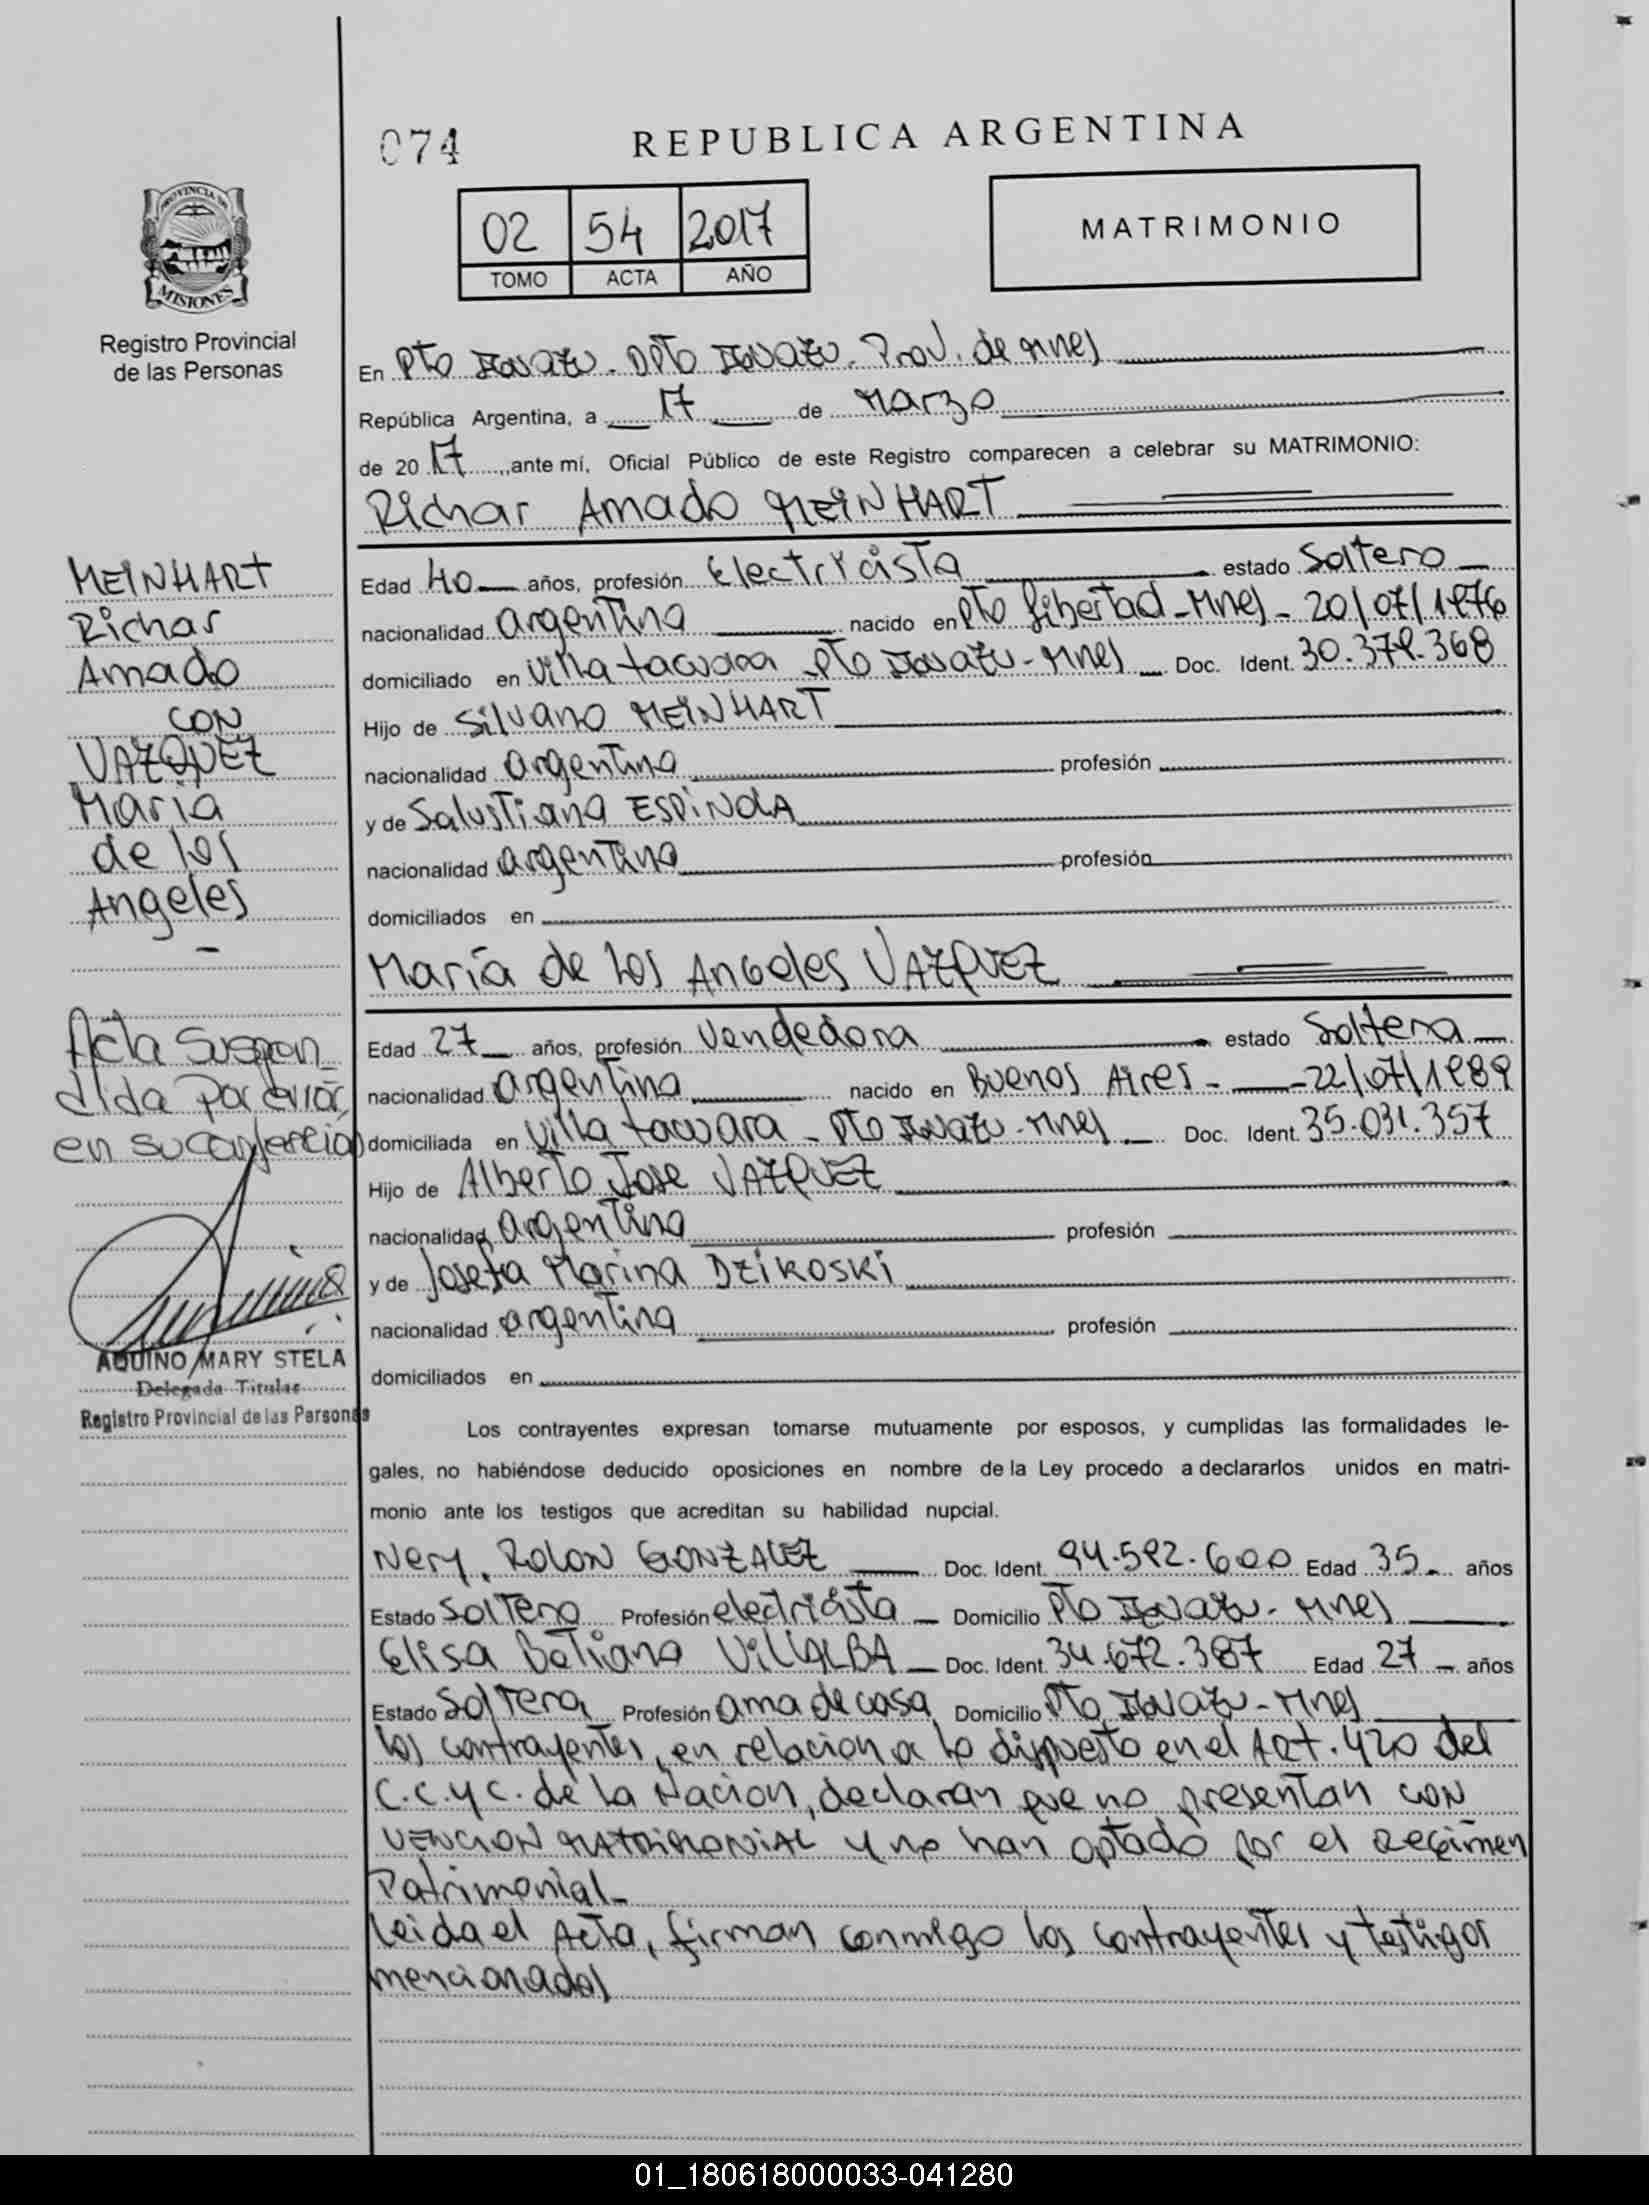 074
REPUBLICA ARGENTINA
PROVINCIA DE
MISIONES
Registro Provincial
de las Personas
02 54 2017
TOMO ACTA AÑO
MATRIMONIO
En Pto Iguazu. Dpto Iguazu. Prov. de Mnes
República Argentina, a 17 de Marzo
de 20 17, ante mí, Oficial Público de este Registro comparecen a celebrar su MATRIMONIO:
Richar Amado MEINHART
Edad 40 años, profesión Electricista estado Soltero
nacionalidad argentina nacido en Pto Libertad - Mnes - 20/07/1976
domiciliado en Villa tacuara - Pto Iguazu - Mnes Doc. Ident. 30.379.368
Hijo de Silvano MEINHART
nacionalidad argentina profesión
y de Salustiana ESPINOLA
nacionalidad argentina profesión
domiciliados en
María de los Angeles VAZQUEZ
Edad 27 años, profesión Vendedora estado Soltera
nacionalidad argentina nacido en Buenos Aires - 22/07/1989
domiciliada en Villa tacuara - Pto Iguazu - Mnes Doc. Ident. 35.031.357
Hijo de Alberto Jose VAZQUEZ
nacionalidad argentina profesión
y de Josefa Marina DZIKOSKI
nacionalidad argentina profesión
domiciliados en
Los contrayentes expresan tomarse mutuamente por esposos, y cumplidas las formalidades le-
gales, no habiéndose deducido oposiciones en nombre de la Ley procedo a declararlos unidos en matri-
monio ante los testigos que acreditan su habilidad nupcial.
Nery. ROLON GONZALEZ Doc. Ident. 94.592.600 Edad 35 años
Estado Soltero Profesión electricista Domicilio Pto Iguazu - Mnes
Elisa Batiana VILLALBA Doc. Ident. 34.672.387 Edad 27 años
Estado Soltera Profesión ama de casa Domicilio Pto Iguazu - Mnes
los contrayentes, en relacion a lo dispuesto en el Art. 420 del
C.C.y C. de la Nacion, declaran que no presentan CON
VENCION MATRIMONIAL y no han optado por el Regimen
Patrimonial
Leida el Acta, firman conmigo los contrayentes y testigos
mencionados
MEINHART
Richar
Amado
CON
VAZQUEZ
Maria
de los
Angeles
Acta Suspen
dida por error
en su confeccion
AQUINO MARY STELA
Delegada Titular
Registro Provincial de las Personas
01_180618000033-041280